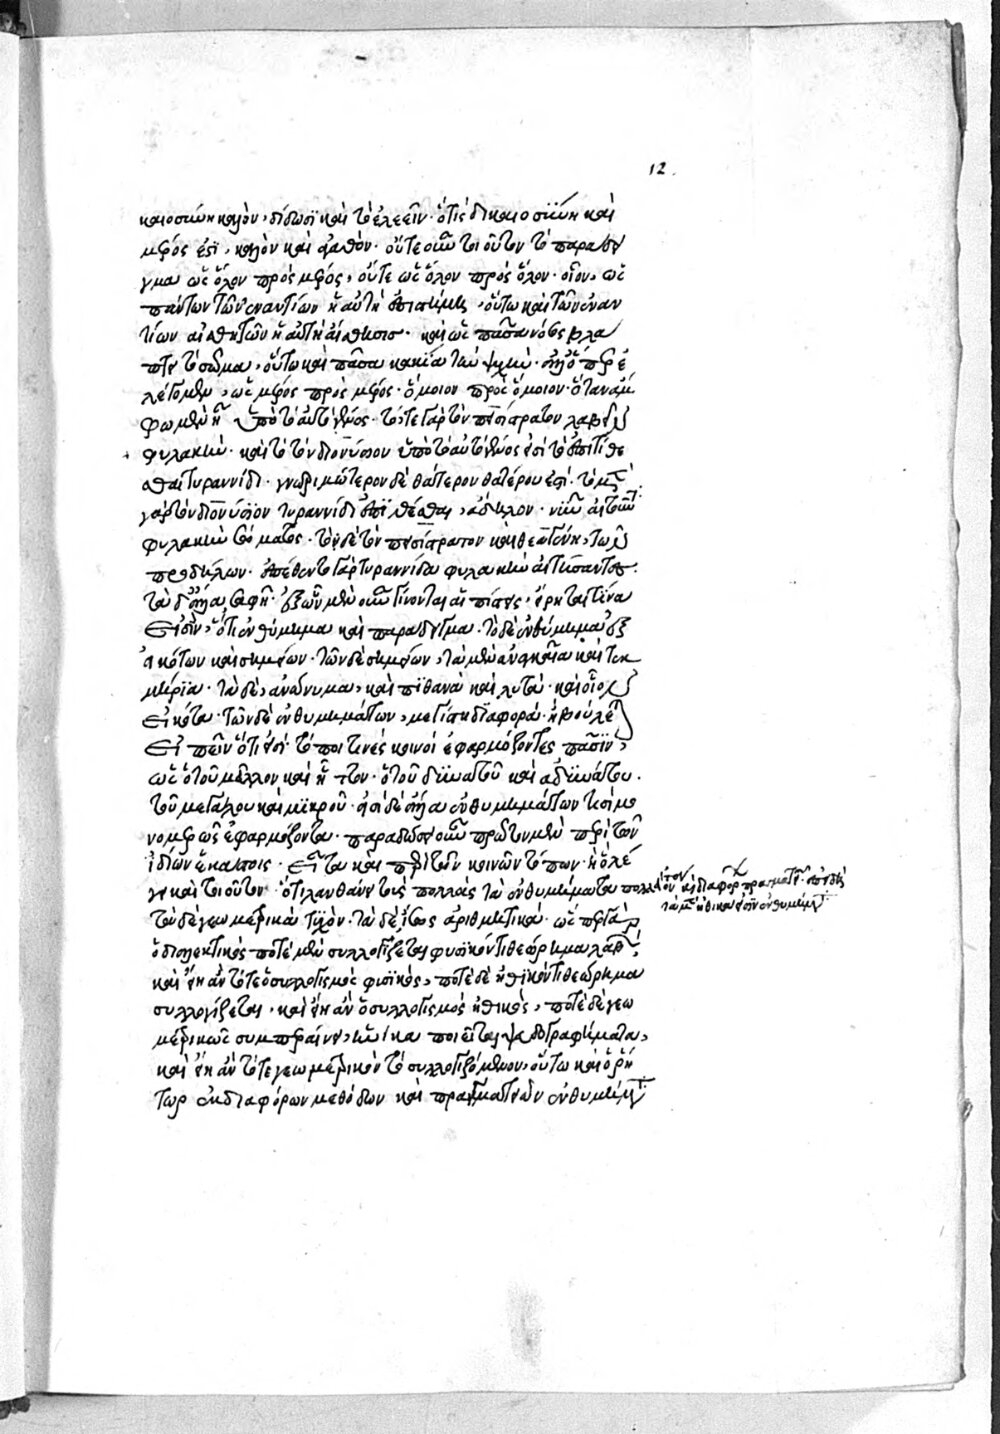 12
καιοσύνη καλὸν, δίδωσι καὶ τὸ ἐλεεῖν· ὅτι ἡ δικαιοσύνη καὶ
μέρος ἐστὶ, καλὸν καὶ ἀγαθὸν· οὔτε οὖν τοιοῦτον τὸ παράδει
γμα ὡς ὅλον πρὸς μέρος, οὔτε ὡς ὅλον πρὸς ὅλον· οἷον, ὡς
πάντων τῶν ἐναντίων ἡ αὐτὴ ἐπιστήμη, οὕτω καὶ τῶν ἐναν
τίων αἰσθητῶν ἡ αὐτὴ αἴσθησις· καὶ ὡς πᾶσα νόσος βλά
πτει τὸ σῶμα, οὕτω καὶ πᾶσα κακία τὴν ψυχήν· ἀλλ' ὅπερ ἐ
λέγομεν, ὡς μέρος πρὸς μέρος· ὅμοιον πρὸς ὅμοιον· ὅταν ἄμ
φω μὲν ἦ ὑπὸ τὸ αὐτὸ γένος· τότε γὰρ τὸν πεισίστρατον λαβεῖν
φυλακὴν· καὶ τὸ τὸν διονύσιον ὑπὸ τὸ αὐτὸ γένος ἐστὶ τὸ ἐπιτίθε
σθαι τυραννίδι· γνωριμώτερον δὲ θάτερον θατέρου ἐστί· τὸ μὲν
γὰρ τὸν διονύσιον τυραννίδι ἐπιθέσθαι, ἄδηλον· νῦν αἰτοῦντα
φυλακὴν τοῦ σώματος· τὸ δὲ τὸν πεισίστρατον καὶ θεαγένη, τῶν
προδήλων· ἐπέθεντο γὰρ τυραννίδι φυλακὴν αἰτήσαντες·
τὰ δ' ἄλλα σαφῆ· ἐξ ὧν μὲν οὖν γίνονται αἱ πίστεις, εἴρηται τίνα
εἰσὶν, ὅτι ἐνθύμημα καὶ παράδειγμα· τὸ δὲ ἐνθύμημα ἐξ
εἰκότων καὶ σημείων· τῶν δὲ σημείων, τὰ μὲν ἀναγκαῖα καὶ τεκ
μήρια· τὰ δὲ, ἀνώνυμα, καὶ πιθανὰ καὶ λυτά· καὶ οἷον
εἰκότα· τῶν δὲ ἐνθυμημάτων, μεγίστη διαφορά· ἢ βούλε
εἰπεῖν ὅτι εἰσί· τόποι τινές κοινοί ἐφαρμόζοντες πᾶσιν,
ὡς ὁ τοῦ μᾶλλον καὶ ἧττον· ὁ τοῦ δυνατοῦ καὶ ἀδυνάτου·
τοῦ μεγάλου καὶ μικροῦ· εἰσὶ δὲ ἄλλα ἐνθυμημάτων τισὶ μο
νομερῶς ἐφαρμόζοντα· παραδώσει οὖν πρῶτον μὲν περὶ τῶν
ἰδίων ἑκάστοις· εἶτα καὶ περὶ τῶν κοινῶν τόπων· ἢ ὃ λέ
γει καὶ τοιοῦτον· ὅτι λανθάνει τοὺς πολλοὺς τὰ ἐνθυμήματα πολλὰ
τὸν δὲ γεωμετρικὰ τυχὸν· τὰ δὲ, ἴσως ἀριθμητικά· ὥσπερ γὰρ
ὁ διαλεκτικὸς ποτὲ μὲν συλλογίζεται φυσικόν τι θεώρημα λαβὼν,
καὶ εἴη ἂν τότε ὁ συλλογισμὸς φυσικὸς, ποτὲ δὲ ἠθικόν τι θεώρημα
συλλογίζεται, καὶ εἴη ἂν ὁ συλλογισμὸς ἠθικὸς, ποτὲ δὲ γεω
μετρικῶς συμπεραίνει, ἡνίκα ποιεῖται ψευδογραφήματα,
καὶ εἴη ἂν τότε γεωμετρικὸν τὸ συλλογιζόμενον, οὕτω καὶ ὁ ῥή
τωρ ἐκ διαφόρων μεθόδων καὶ πραγματειῶν ἐνθυμήματα